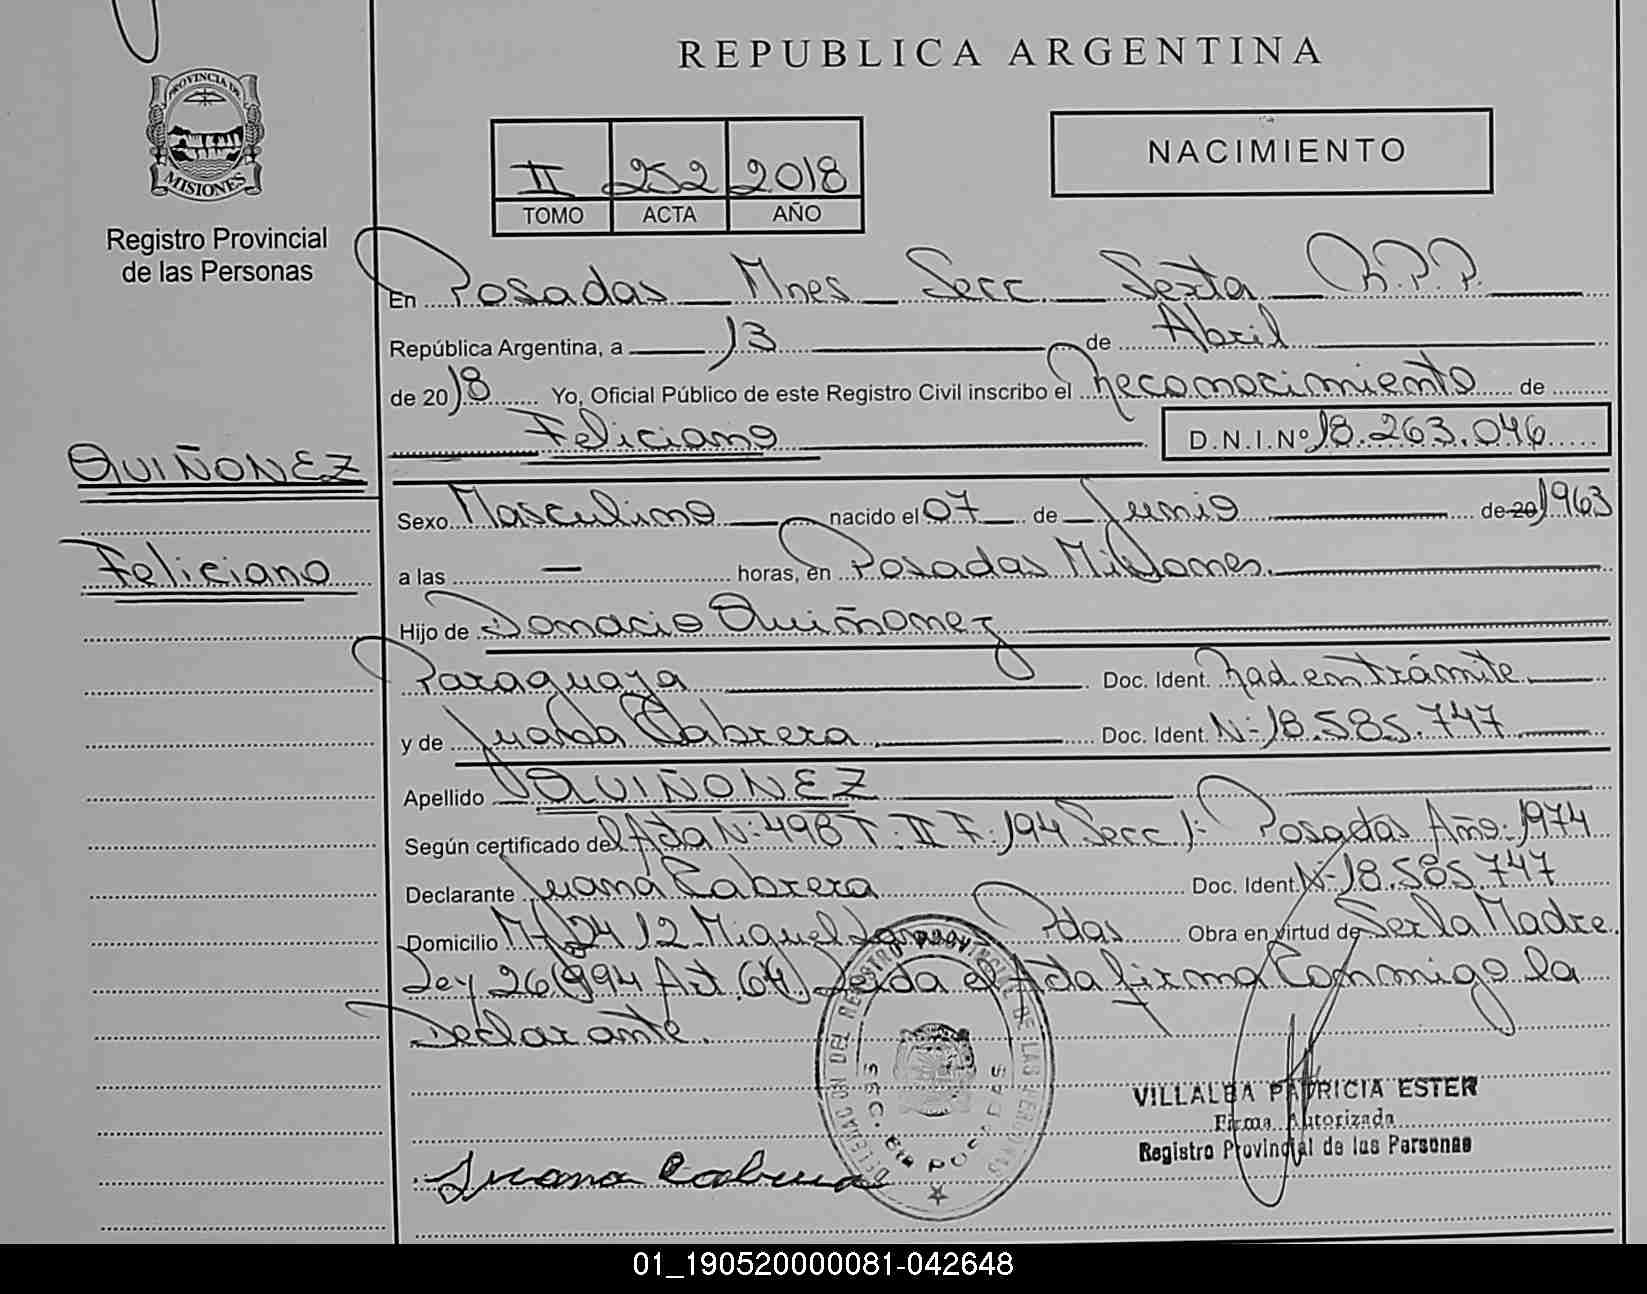 REPUBLICA ARGENTINA
PROVINCIA DE
MISIONES
Registro Provincial
de las Personas
II 252 2018
TOMO ACTA AÑO
NACIMIENTO
En Posadas Mnes Secc Sexta R.P.P.
República Argentina, a 13 de Abril
de 2018 Yo, Oficial Público de este Registro Civil inscribo el Reconocimiento de
Feliciano D.N.I.Nº 18.263.046
QUIÑONEZ
Sexo Masculino nacido el 07 de Junio de 20 1963
Feliciano
a las — horas, en Posadas Misiones.
Hijo de Donacio Quiñonez
Paraguaya Doc. Ident. Rad. en trámite
y de Juana Cabrera Doc. Ident. N: 18.585.747
Apellido QUIÑONEZ
Según certificado del Acta N: 498 T: II F: 194 Secc 1: Posadas Año: 1974
Declarante Juana Cabrera Doc. Ident. N- 18.585.747
Domicilio 24 12 Miguel Pdas Obra en virtud de Ser la Madre
Ley 26.994 Art. 64) Leída el Acta firma Conmigo la
Declarante.
DELEGACION DEL REGISTRO PROVINCIAL DE LAS PERSONAS
SECC. 6ta POSADAS
VILLALBA PATRICIA ESTER
Firma Autorizada
Registro Provincial de las Personas
Juana Cabrera
01_190520000081-042648